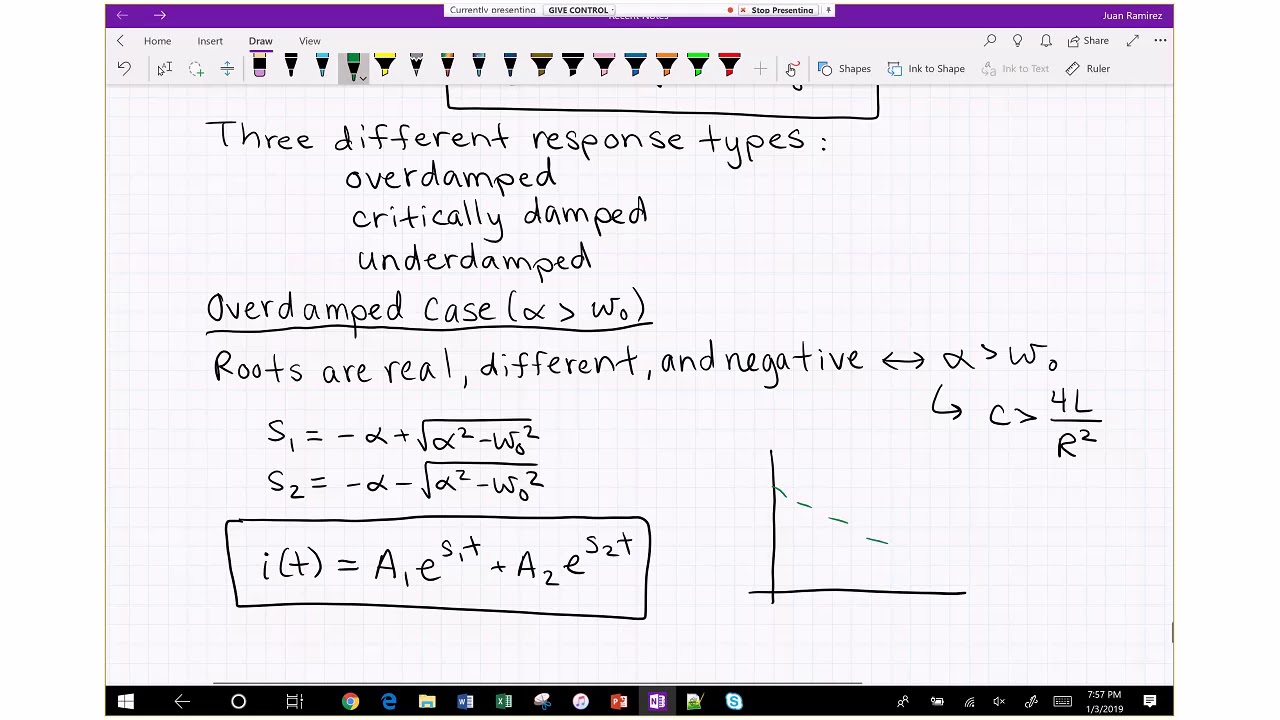 Currently presenting GIVE CONTROL Stop Presenting
Recent Notes
Juan Ramirez
Home Insert Draw View
Share
Shapes Ink to Shape Ink to Text Ruler
Three different response types:
overdamped
critically damped
underdamped
Overdamped Case (α > w₀)
Roots are real, different, and negative ↔ α > w₀
↳ C > 4L/R²
S₁ = -α + √(α² - w₀²)
S₂ = -α - √(α² - w₀²)
i(t) = A₁e^(s₁t) + A₂e^(s₂t)
7:57 PM
1/3/2019